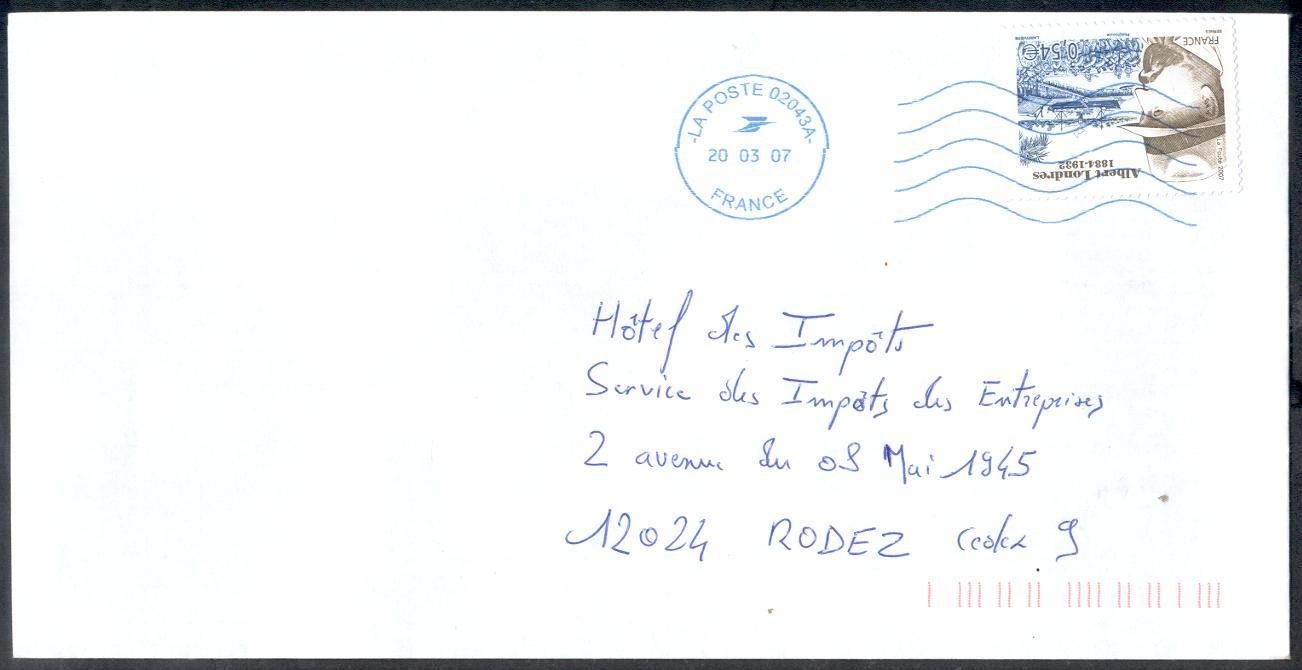 LA POSTE 02043A
20 03 07
FRANCE
FRANCE
0,54€
La Poste 2007
Albert Londres
1884-1932
Hôtel des Impôts
Service des Impôts des Entreprises
2 avenue du 08 Mai 1945
12024 RODEZ Cedex 9